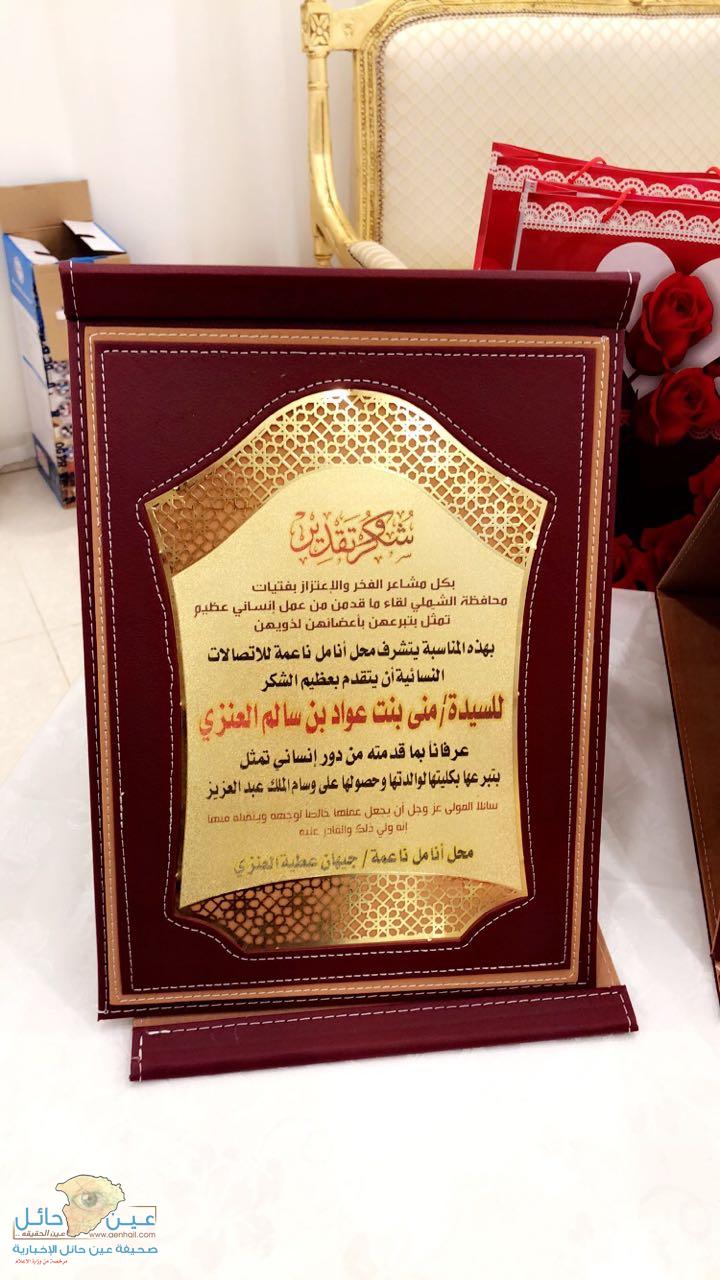 شكر وتقدير
بكل مشاعر الفخر والإعتزاز بفتيات
محافظة الشملي لقاء ما قدمن من عمل إنساني عظيم
تمثل بتبرعهن بأعضائهن لذويهن
بهذه المناسبة يتشرف محل أنامل ناعمة للاتصالات
النسائية أن يتقدم بعظيم الشكر
للسيدة/ منى بنت عواد بن سالم العنزي
عرفاناً بما قدمته من دور إنساني تمثل
بتبرعها بكليتها لوالدتها وحصولها على وسام الملك عبد العزيز
سائلا المولى عز وجل أن يجعل عملها خالصا لوجهه ويتقبله منها
إنه ولي ذلك والقادر عليه
محل أنامل ناعمة / جيهان عطية العنزي
عين حائل
عين الحقيقه ..
www.aenhail.com
صحيفة عين حائل الإخبارية
مرخصة من وزارة الاعلام